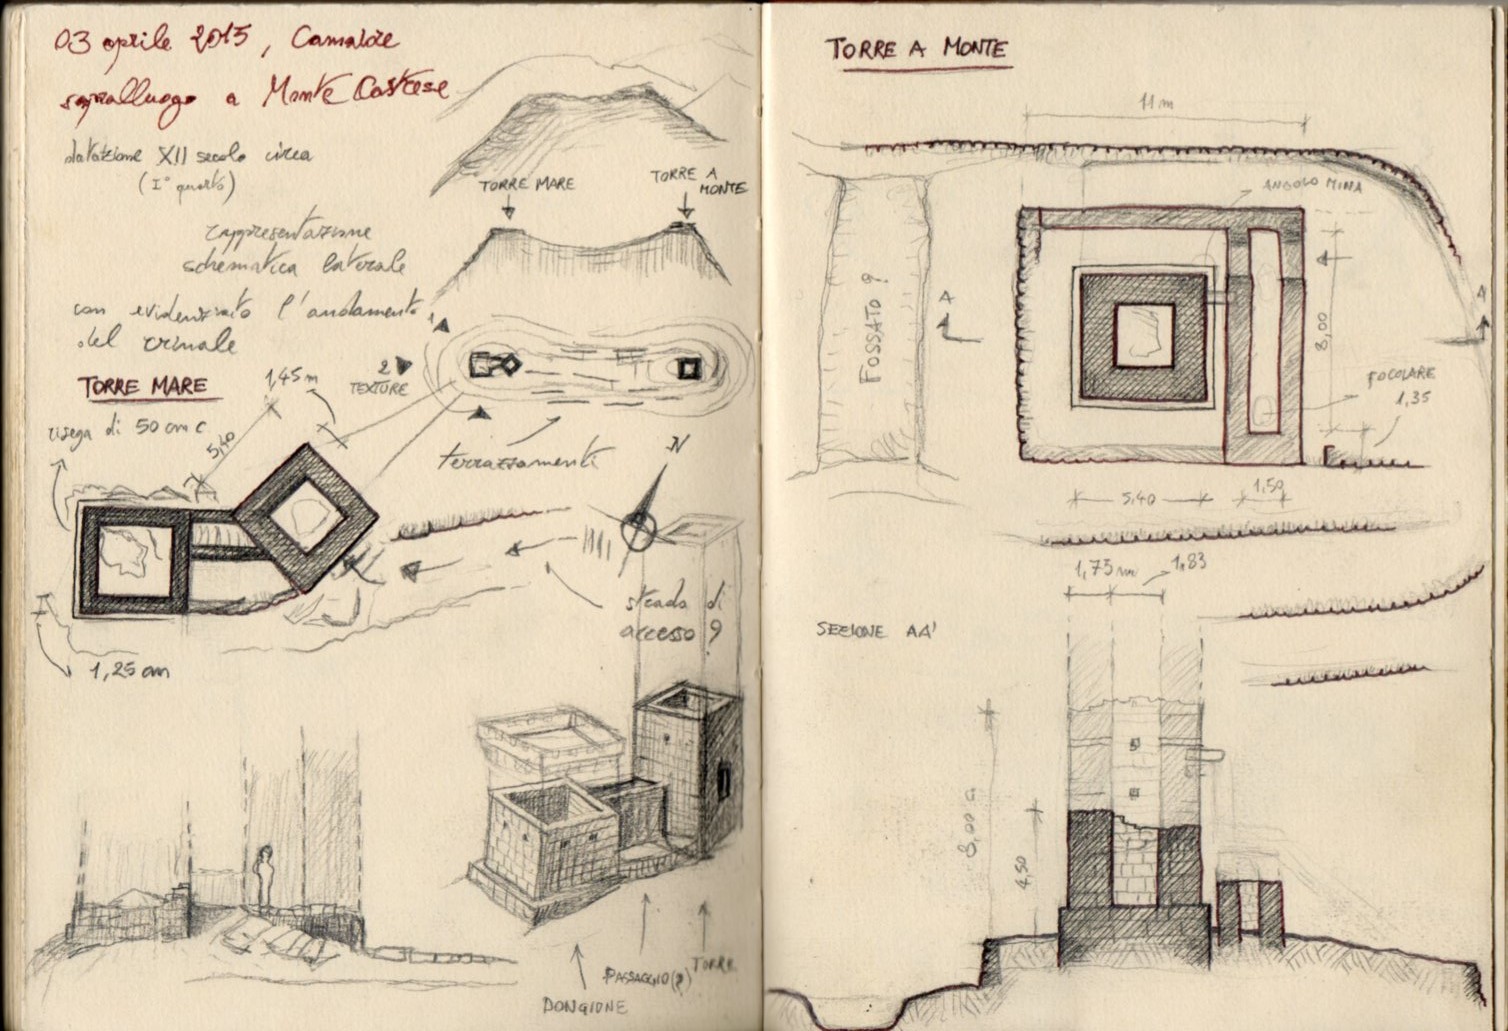 03 aprile 2015, Camaiore
sopralluogo a Monte Castrese
datazione XII secolo circa
(I° quarto)
rappresentazione
schematica laterale
con evidenziato l'andamento
del crinale
TORRE MARE
TORRE A
MONTE
1
2
TEXTURE
terrazzamenti
TORRE MARE
risega di 50 cm c
1,45 m
5,40
N
strada di
accesso?
1,25 cm
DONGIONE
PASSAGGIO(?)
TORRE
TORRE A MONTE
11 m
ANGOLO MINA
FOSSATO?
A
A'
8,00
FOCOLARE
1,35
5,40
1,50
1,75 m
1,83
SEZIONE AA'
8,00 c
4,50